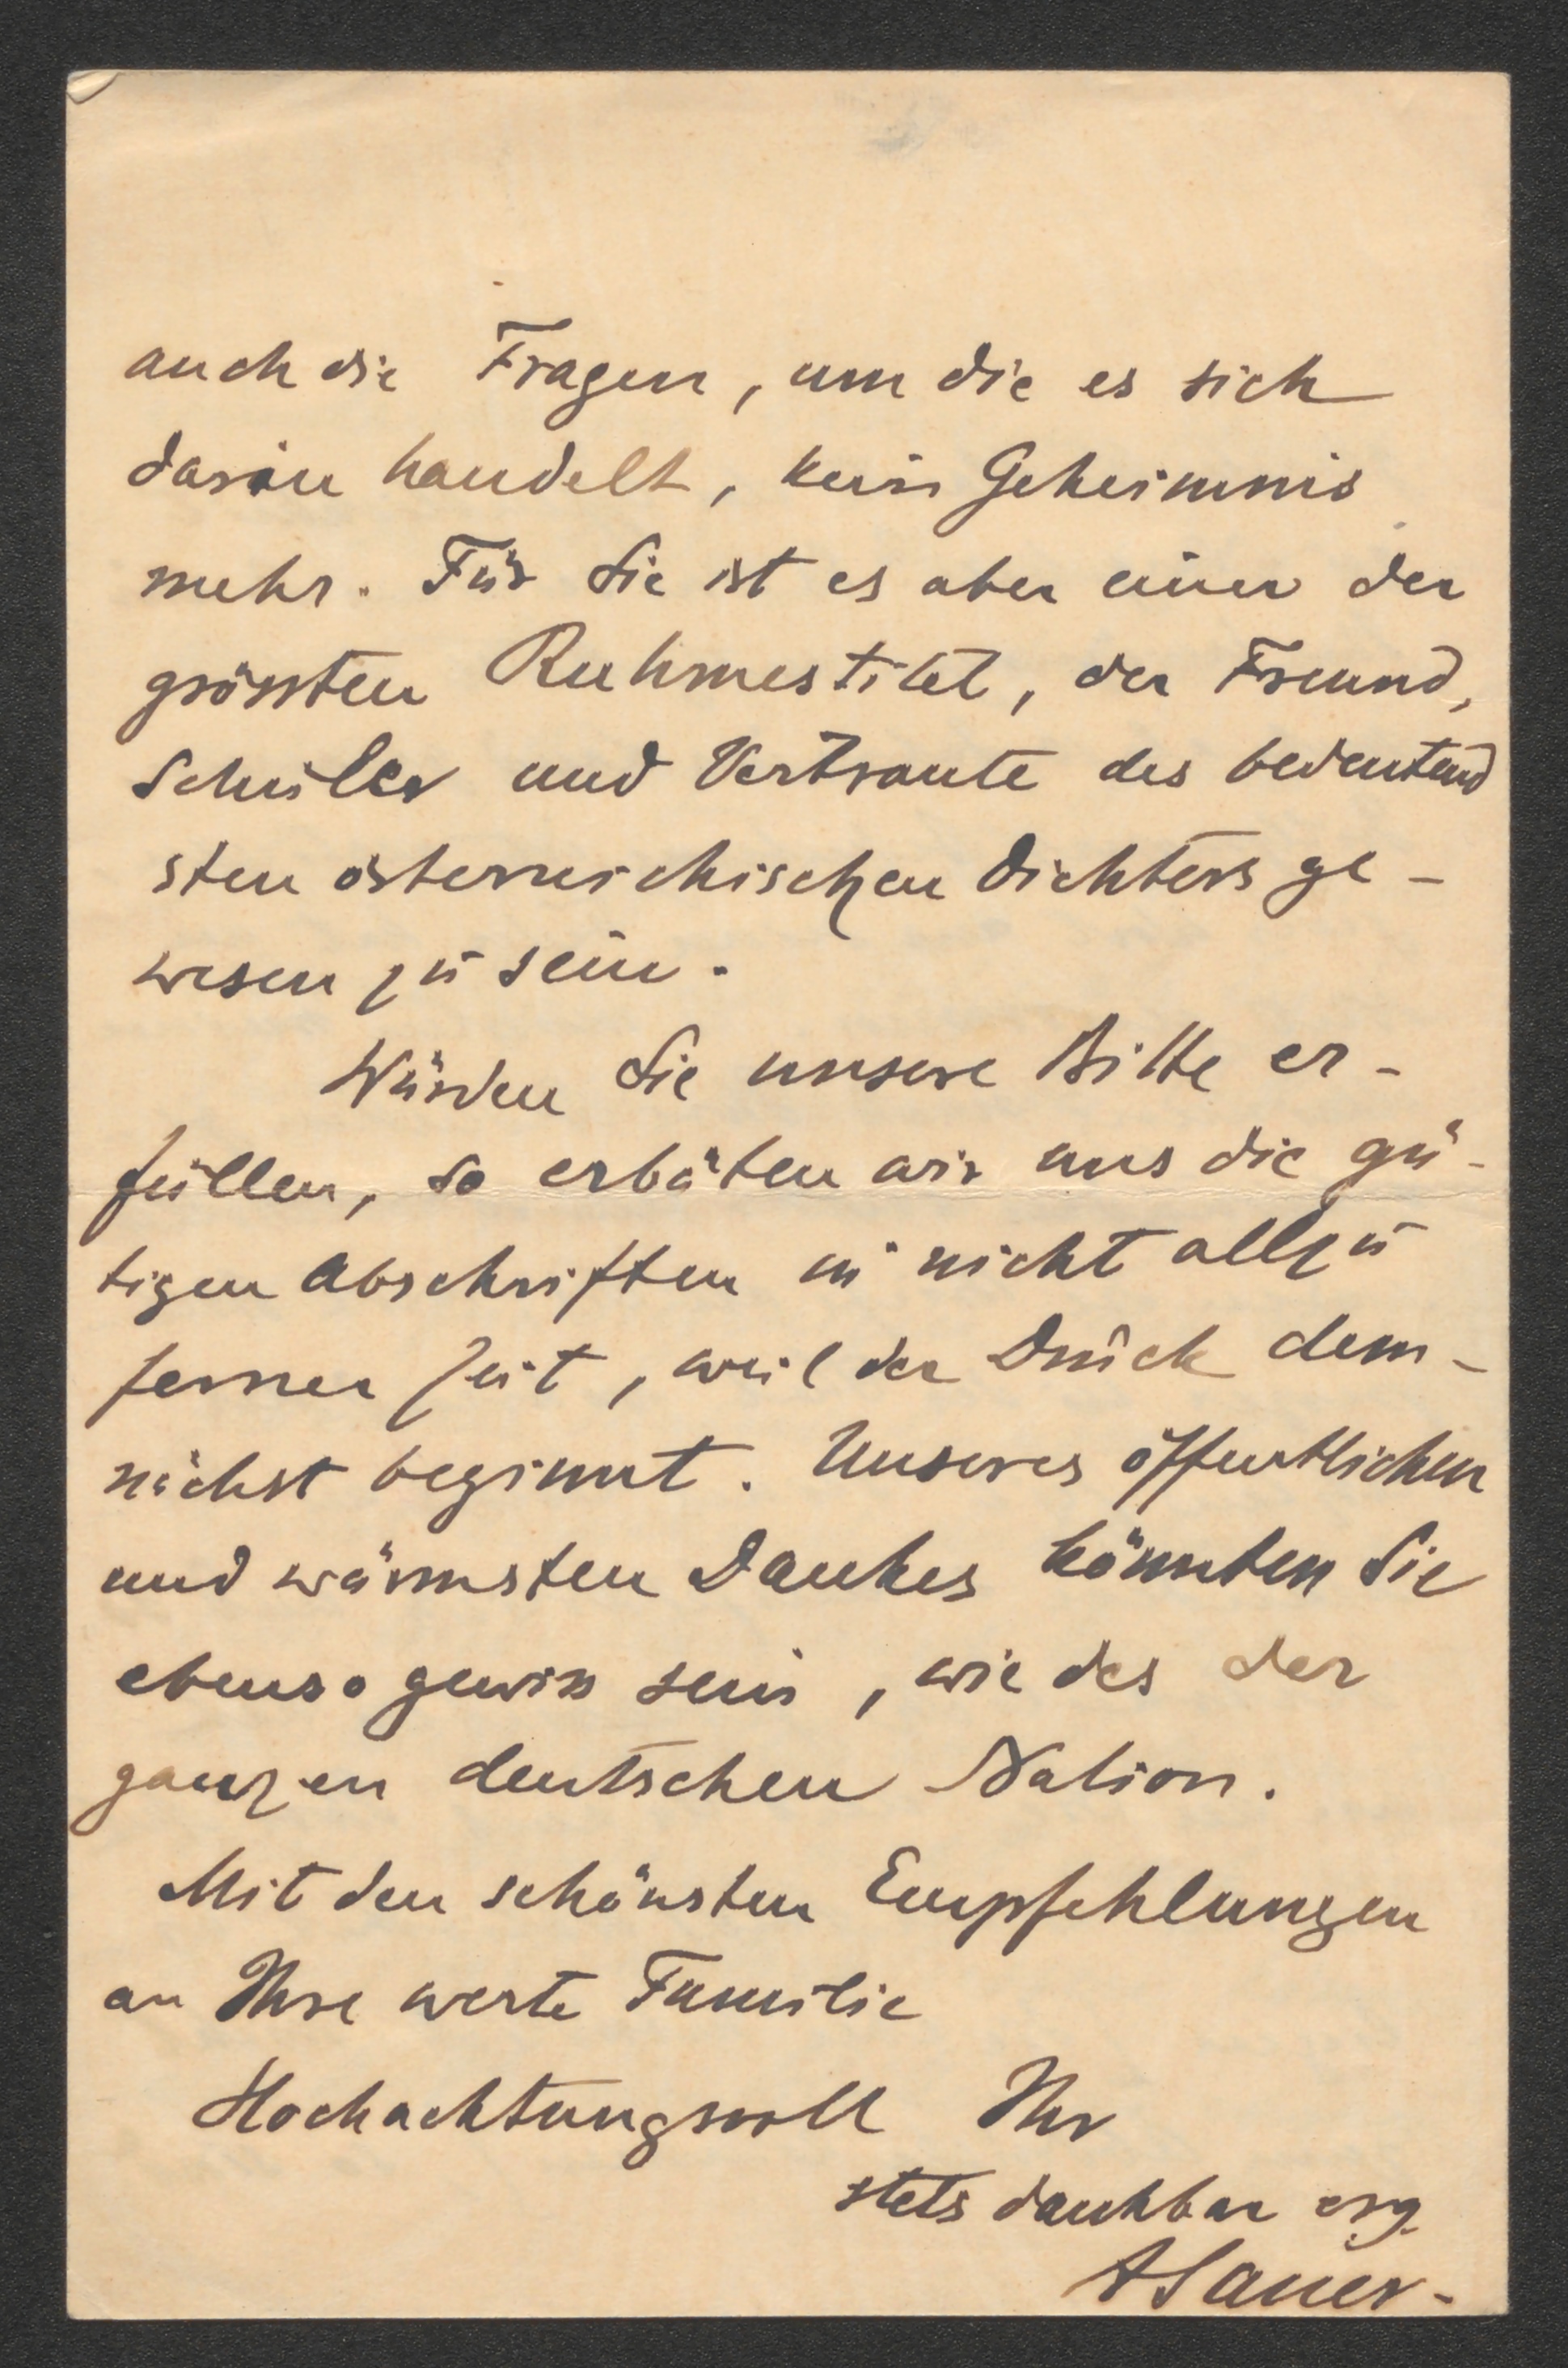 auch die Fragen, um die es sich
darin handelt, kein Geheimnis
mehr. Für Sie ist es aber einer der
grössten Ruhmestitel, der Freund,
Schüler und Vertraute des bedeutend
sten österreichischen Dichters ge-
wesen zu sein.
Würden Sie unsere Bitte er-
füllen, so erbäten wir uns die gü-
tigen Abschriften in nicht allzu
ferner Zeit, weil der Druck dem-
nächst beginnt. Unseres öffentlichen
und wärmsten Dankes könnten Sie
ebenso gewiss sein, wie des der
ganzen deutschen Nation.
Mit den schönsten Empfehlungen
an Ihre werte Familie
Hochachtungsvoll Ihr
stets dankbar erg.
ASauer.